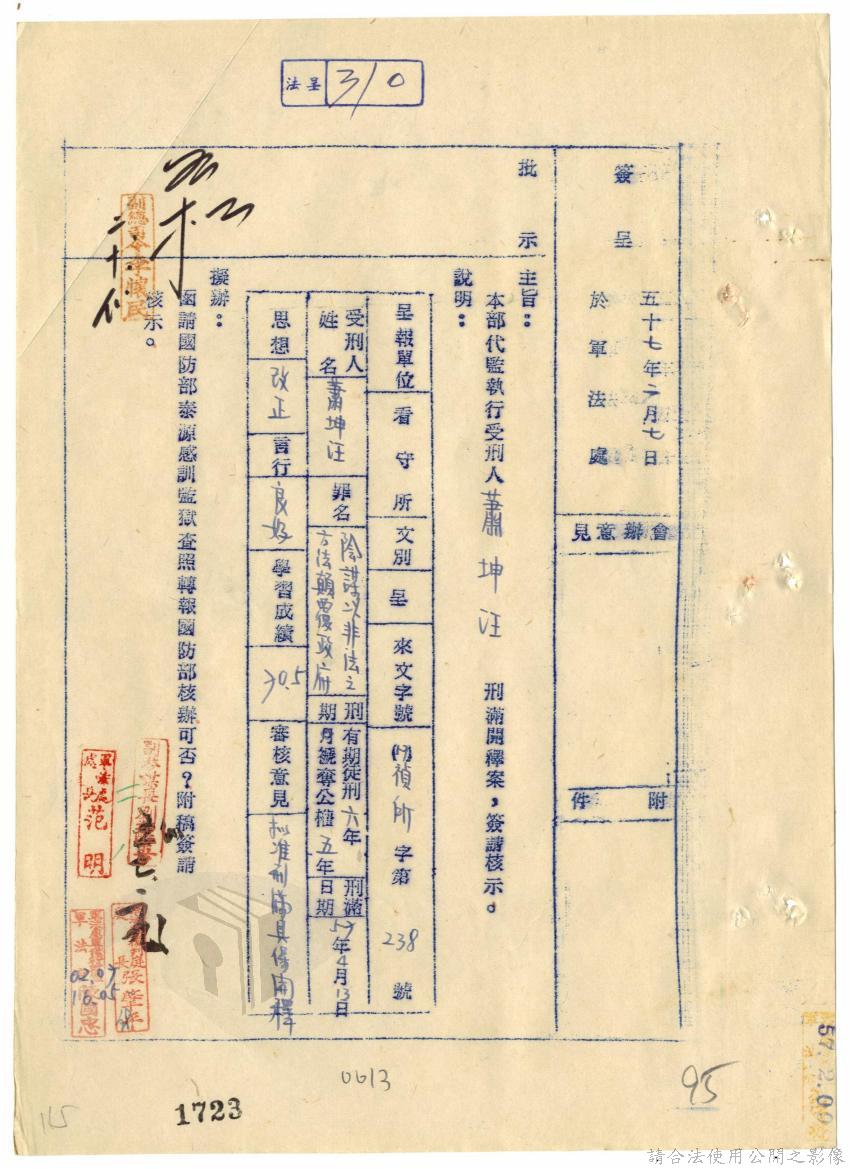 法呈 310
簽呈
五十七年二月七日
於軍法處
會辦意見
附件
批示
主旨：
本部代監執行受刑人蕭坤汪 刑滿開釋案，簽請核示。
說明：
呈報單位 看守所 文別 呈 來文字號 禎所字第238號
受刑人姓名 蕭坤汪 罪名 陰謀以非法之方法顛覆政府 刑期 有期徒刑六年 月褫奪公權五年 刑滿日期 57年4月13日
思想 改正 言行 良好 學習成績 70.5 審核意見 擬准刑滿具保開釋
擬辦：
函請國防部泰源感訓監獄查照轉報國防部核辦可否？附稿簽請
核示。
副總司令李懷民
軍法處處長范明
02.07
16.05
57.2.09
0013
95
1723
請合法使用公開之影像